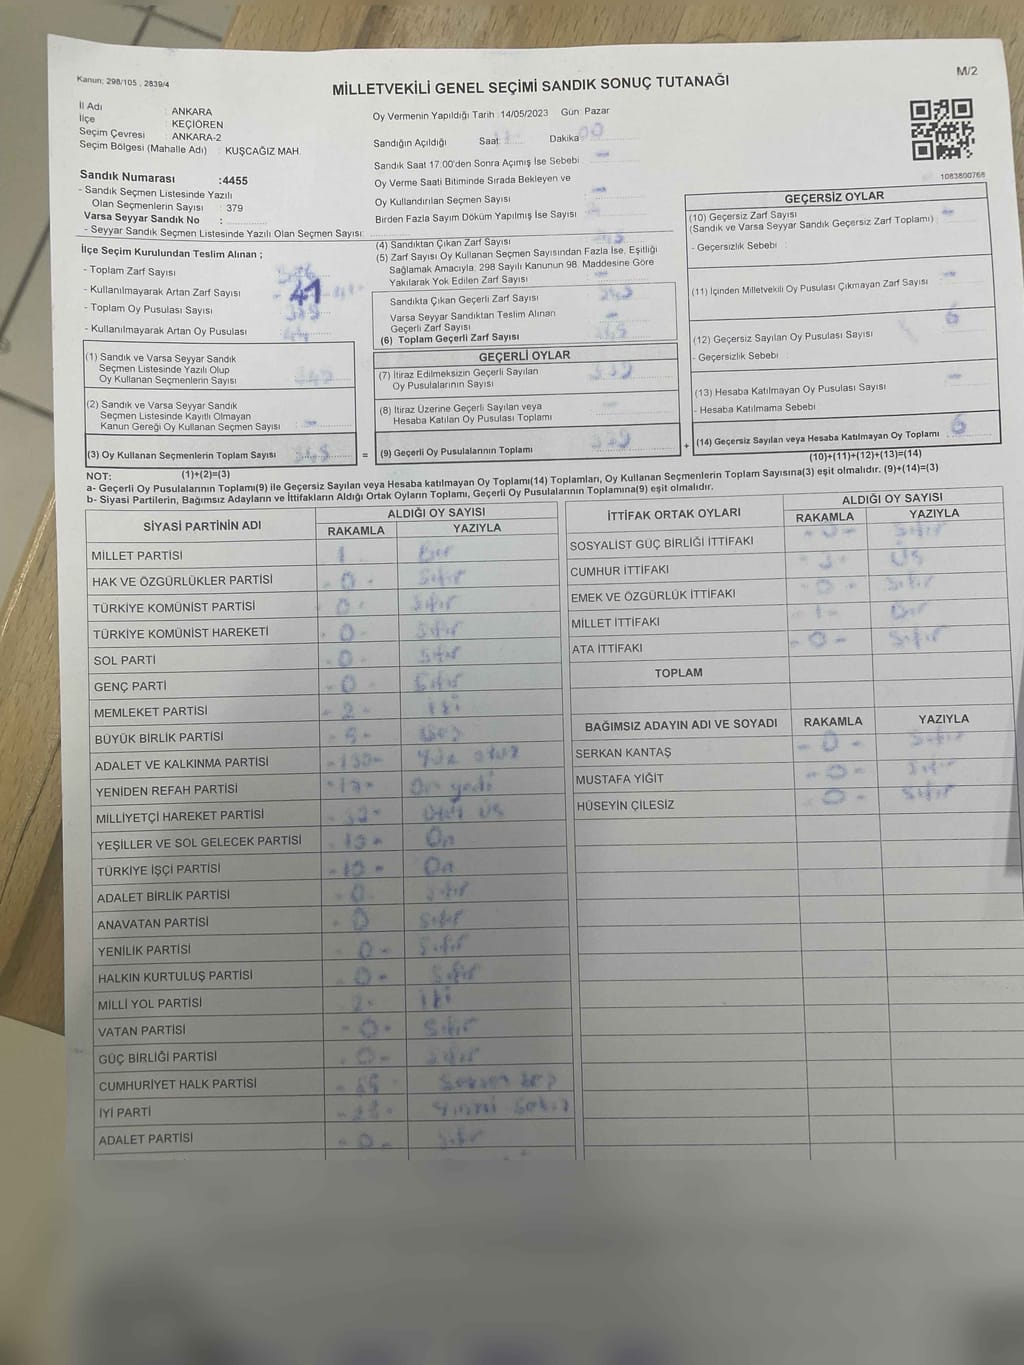 Kanun; 298/105 , 2839/4
MİLLETVEKİLİ GENEL SEÇİMİ SANDIK SONUÇ TUTANAĞI
M/2
İl Adı : ANKARA
İlçe : KEÇİÖREN
Seçim Çevresi : ANKARA-2
Seçim Bölgesi (Mahalle Adı) : KUŞCAĞIZ MAH.
Sandık Numarası :4455
- Sandık Seçmen Listesinde Yazılı
Olan Seçmenlerin Sayısı : 379
Varsa Seyyar Sandık No :
- Seyyar Sandık Seçmen Listesinde Yazılı Olan Seçmen Sayısı:
Oy Vermenin Yapıldığı Tarih :14/05/2023 Gün :Pazar
Sandığın Açıldığı Saat: Dakika: 00
Sandık Saat 17:00'den Sonra Açımış İse Sebebi :
Oy Verme Saati Bitiminde Sırada Bekleyen ve
Oy Kullandırılan Seçmen Sayısı
Birden Fazla Sayım Döküm Yapılmış İse Sayısı
1083800768
İlçe Seçim Kurulundan Teslim Alınan ;
- Toplam Zarf Sayısı
- Kullanılmayarak Artan Zarf Sayısı 41
- Toplam Oy Pusulası Sayısı
- Kullanılmayarak Artan Oy Pusulası
(1) Sandık ve Varsa Seyyar Sandık
Seçmen Listesinde Yazılı Olup
Oy Kullanan Seçmenlerin Sayısı
(2) Sandık ve Varsa Seyyar Sandık
Seçmen Listesinde Kayıtlı Olmayan
Kanun Gereği Oy Kullanan Seçmen Sayısı : -
(3) Oy Kullanan Seçmenlerin Toplam Sayısı 345
(4) Sandıktan Çıkan Zarf Sayısı
(5) Zarf Sayısı Oy Kullanan Seçmen Sayısından Fazla İse, Eşitliği
Sağlamak Amacıyla, 298 Sayılı Kanunun 98. Maddesine Göre
Yakılarak Yok Edilen Zarf Sayısı : -
Sandıkta Çıkan Geçerli Zarf Sayısı 345
Varsa Seyyar Sandıktan Teslim Alınan
Geçerli Zarf Sayısı -
(6) Toplam Geçerli Zarf Sayısı 345
GEÇERLİ OYLAR
(7) İtiraz Edilmeksizin Geçerli Sayılan
Oy Pusulalarının Sayısı 339
(8) İtiraz Üzerine Geçerli Sayılan veya
Hesaba Katılan Oy Pusulası Toplamı -
= (9) Geçerli Oy Pusulalarının Toplamı 339
GEÇERSİZ OYLAR
(10) Geçersiz Zarf Sayısı
(Sandık ve Varsa Seyyar Sandık Geçersiz Zarf Toplamı) : -
- Geçersizlik Sebebi :
(11) İçinden Milletvekili Oy Pusulası Çıkmayan Zarf Sayısı : -
(12) Geçersiz Sayılan Oy Pusulası Sayısı : 6
- Geçersizlik Sebebi :
(13) Hesaba Katılmayan Oy Pusulası Sayısı : -
- Hesaba Katılmama Sebebi
+ (14) Geçersiz Sayılan veya Hesaba Katılmayan Oy Toplamı 6
NOT: (1)+(2)=(3)
(10)+(11)+(12)+(13)=(14)
a- Geçerli Oy Pusulalarının Toplamı(9) ile Geçersiz Sayılan veya Hesaba katılmayan Oy Toplamı(14) Toplamları, Oy Kullanan Seçmenlerin Toplam Sayısına(3) eşit olmalıdır. (9)+(14)=(3)
b- Siyasi Partilerin, Bağımsız Adayların ve İttifakların Aldığı Ortak Oyların Toplamı, Geçerli Oy Pusulalarının Toplamına(9) eşit olmalıdır.
SİYASİ PARTİNİN ADI ALDIĞI OY SAYISI
RAKAMLA YAZIYLA
MİLLET PARTİSİ 1 Bir
HAK VE ÖZGÜRLÜKLER PARTİSİ -0- Sıfır
TÜRKİYE KOMÜNİST PARTİSİ 0- Sıfır
TÜRKİYE KOMÜNİST HAREKETİ -0- Sıfır
SOL PARTİ -0- Sıfır
GENÇ PARTİ -0- Sıfır
MEMLEKET PARTİSİ -2- İki
BÜYÜK BİRLİK PARTİSİ -5- Beş
ADALET VE KALKINMA PARTİSİ -130- Yüz otuz
YENİDEN REFAH PARTİSİ -17- On yedi
MİLLİYETÇİ HAREKET PARTİSİ Otuz üç
YEŞİLLER VE SOL GELECEK PARTİSİ -10- On
TÜRKİYE İŞÇİ PARTİSİ -10- On
ADALET BİRLİK PARTİSİ -0- Sıfır
ANAVATAN PARTİSİ -0 Sıfır
YENİLİK PARTİSİ 0- Sıfır
HALKIN KURTULUŞ PARTİSİ -0- Sıfır
MİLLİ YOL PARTİSİ 2- İki
VATAN PARTİSİ -0- Sıfır
GÜÇ BİRLİĞİ PARTİSİ -0- Sıfır
CUMHURİYET HALK PARTİSİ -85 Seksen beş
İYİ PARTİ -28- Yirmi sekiz
ADALET PARTİSİ -0- Sıfır
İTTİFAK ORTAK OYLARI ALDIĞI OY SAYISI
RAKAMLA YAZIYLA
SOSYALİST GÜÇ BİRLİĞİ İTTİFAKI -0- Sıfır
CUMHUR İTTİFAKI -3- Üç
EMEK VE ÖZGÜRLÜK İTTİFAKI -0- Sıfır
MİLLET İTTİFAKI -1- Bir
ATA İTTİFAKI -0- Sıfır
TOPLAM
BAĞIMSIZ ADAYIN ADI VE SOYADI RAKAMLA YAZIYLA
SERKAN KANTAŞ -0- Sıfır
MUSTAFA YİĞİT -0- Sıfır
HÜSEYİN ÇİLESİZ -0- Sıfır